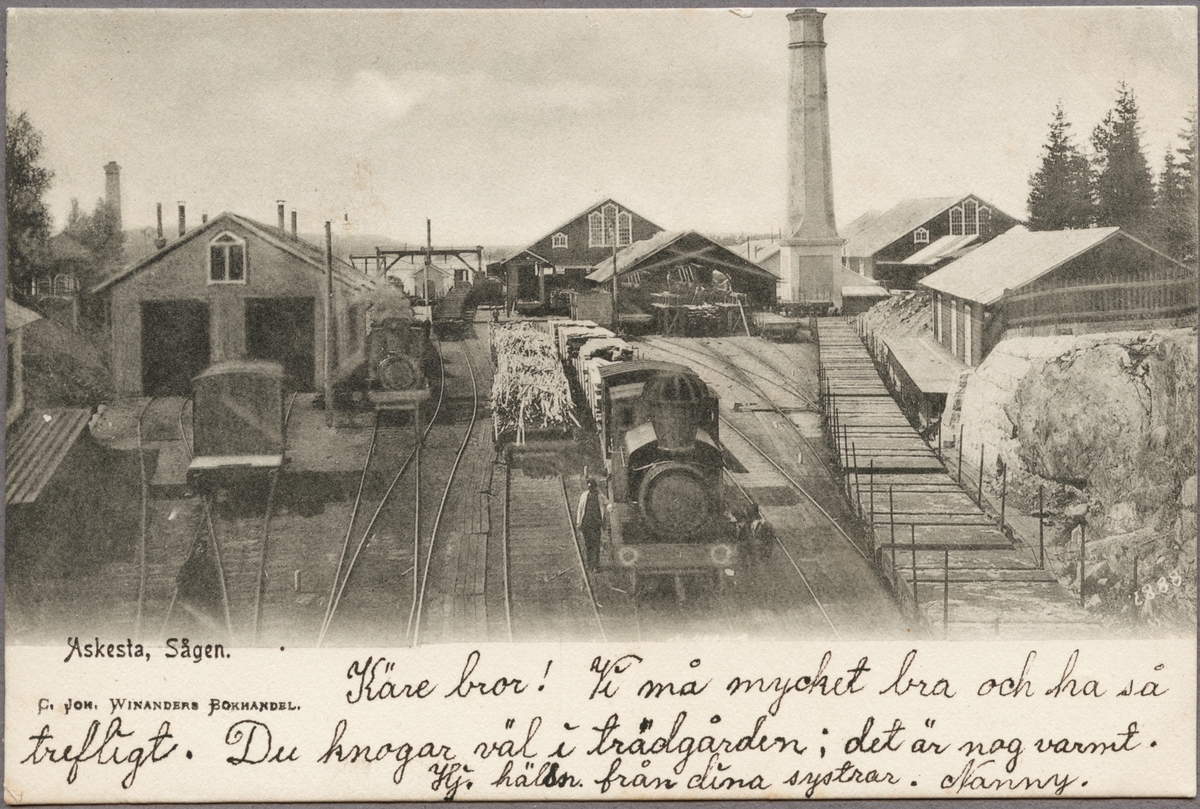 2887
Askesta, Sågen.
C. JOH. WINANDERS BOKHANDEL.
Käre bror! Vi må mycket bra och ha så
trefligt. Du knogar väl i trädgården; det är nog varmt.
Hj. hälsn. från dina systrar. Nanny.